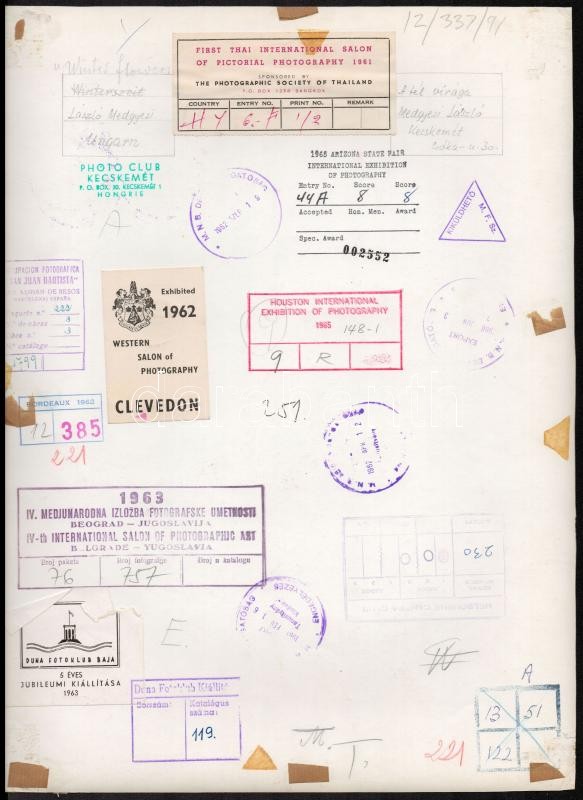 12/337/91
FIRST THAI INTERNATIONAL SALON
OF PICTORIAL PHOTOGRAPHY 1961
SPONSORED BY
THE PHOTOGRAPHIC SOCIETY OF THAILAND
P.O. BOX 1258 BANGKOK
COUNTRY ENTRY NO. PRINT NO. REMARK
HY 6-F 1/2
"Winter flowers
Winterszeit
László Medgyesi
Ungarn
A tél virága
Medgyesi László
Kecskemét
Csóka-u. 30.
PHOTO CLUB
KECSKEMÉT
P. O. BOX. 30. KECSKEMÉT 1
HONGRIE
A
1965 ARIZONA STATE FAIR
INTERNATIONAL EXHIBITION
OF PHOTOGRAPHY
Entry No. Score Score
44A 8 8
Accepted Hon. Men. Award
Spec. Award
002552
KIKÜLDHETŐ
M. F. Sz.
AGRUPACION FOTOGRAFICA
"SAN JUAN BAUTISTA"
SAN ADRIAN DE BESOS
Exhibited
1962
WESTERN
SALON of
PHOTOGRAPHY
CLEVEDON
HOUSTON INTERNATIONAL
EXHIBITION OF PHOTOGRAPHY
1965 148-1
9 R
BORDEAUX 1962
12 385
221
251.
1963
IV. MEDJUNARODNA IZLOŽBA FOTOGRAFSKE UMETNOSTI
BEOGRAD — JUGOSLAVIJA
IV-th INTERNATIONAL SALON OF PHOTOGRAPHIC ART
BELGRADE — YUGOSLAVIA
Broj paketa Broj fotografije Broj u katalogu
76 757
230
DUNA FOTOKLUB BAJA
5 ÉVES
JUBILEUMI KIÁLLÍTÁSA
1963
E.
Duna Fotoklub Kiállít
Sorszám: Katalógus
száma:
119.
M.
T.
221
A
13 51
122